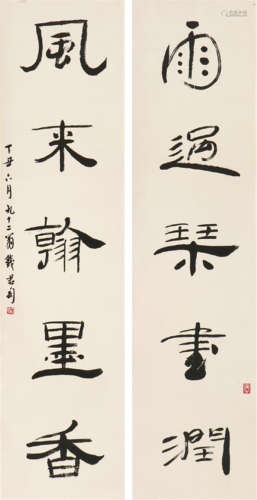 雨過琹書潤
風来翰墨香
丁丑六月九十二翁錢君匋